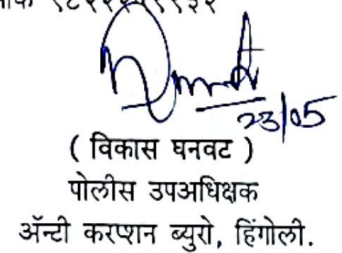 23/05
( विकास घनवट )
पोलीस उपअधिक्षक
ॲन्टी करप्शन ब्युरो, हिंगोली.